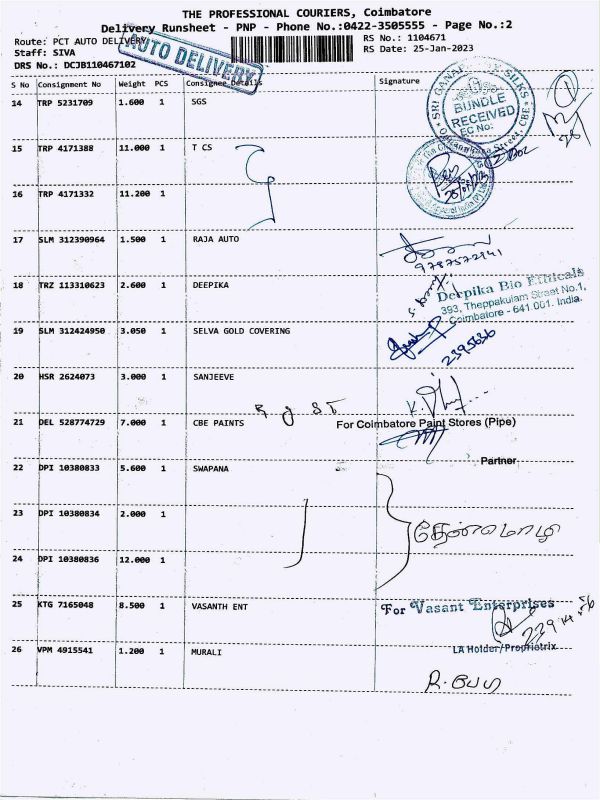 THE PROFESSIONAL COURIERS, Coimbatore
Delivery Runsheet - PNP - Phone No.:0422-3505555 - Page No.:2
Route: PCT AUTO DELIVERY
RS No.: 1104671
Staff: SIVA
RS Date: 25-Jan-2023
DRS No.: DCJB110467102
AUTO DELIVERY
S No Consignment No Weight PCS Consignee Details Signature
14 TRP 5231709 1.600 1 SGS
SRI GANAPATHY SILKS
BUNDLE
RECEIVED
EC No:
Oppanakkara Street, CBE
15 TRP 4171388 11.000 1 T CS
16 TRP 4171332 11.200 1
17 SLM 312390964 1.500 1 RAJA AUTO
9787572941
18 TRZ 113310623 2.600 1 DEEPIKA
Deepika Bio Ethicals
393, Theppakulam Street No.1,
Coimbatore - 641 001. India.
19 SLM 312424950 3.050 1 SELVA GOLD COVERING
2395636
20 HSR 2624073 3.000 1 SANJEEVE
21 DEL 528774729 7.000 1 CBE PAINTS
For Coimbatore Paint Stores (Pipe)
Partner
22 DPI 10380833 5.600 1 SWAPANA
23 DPI 10380834 2.000 1
தேன்மொழி
24 DPI 10380836 12.000 1
25 KTG 7165048 8.500 1 VASANTH ENT
For Vasant Enterprises
LA Holder/Proprietrix
26 VPM 4915541 1.200 1 MURALI